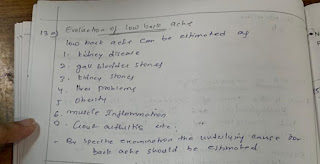 13 a) Evaluation of low back ache
low back ache can be estimated as
1. kidney disease
2. gall bladder stones
3. kidney stones
4. liver problems
5. Obesity
6. muscle Inflammation
7. Gout arthritis etc.
- By specific examination the underlying cause for
back ache should be estimated